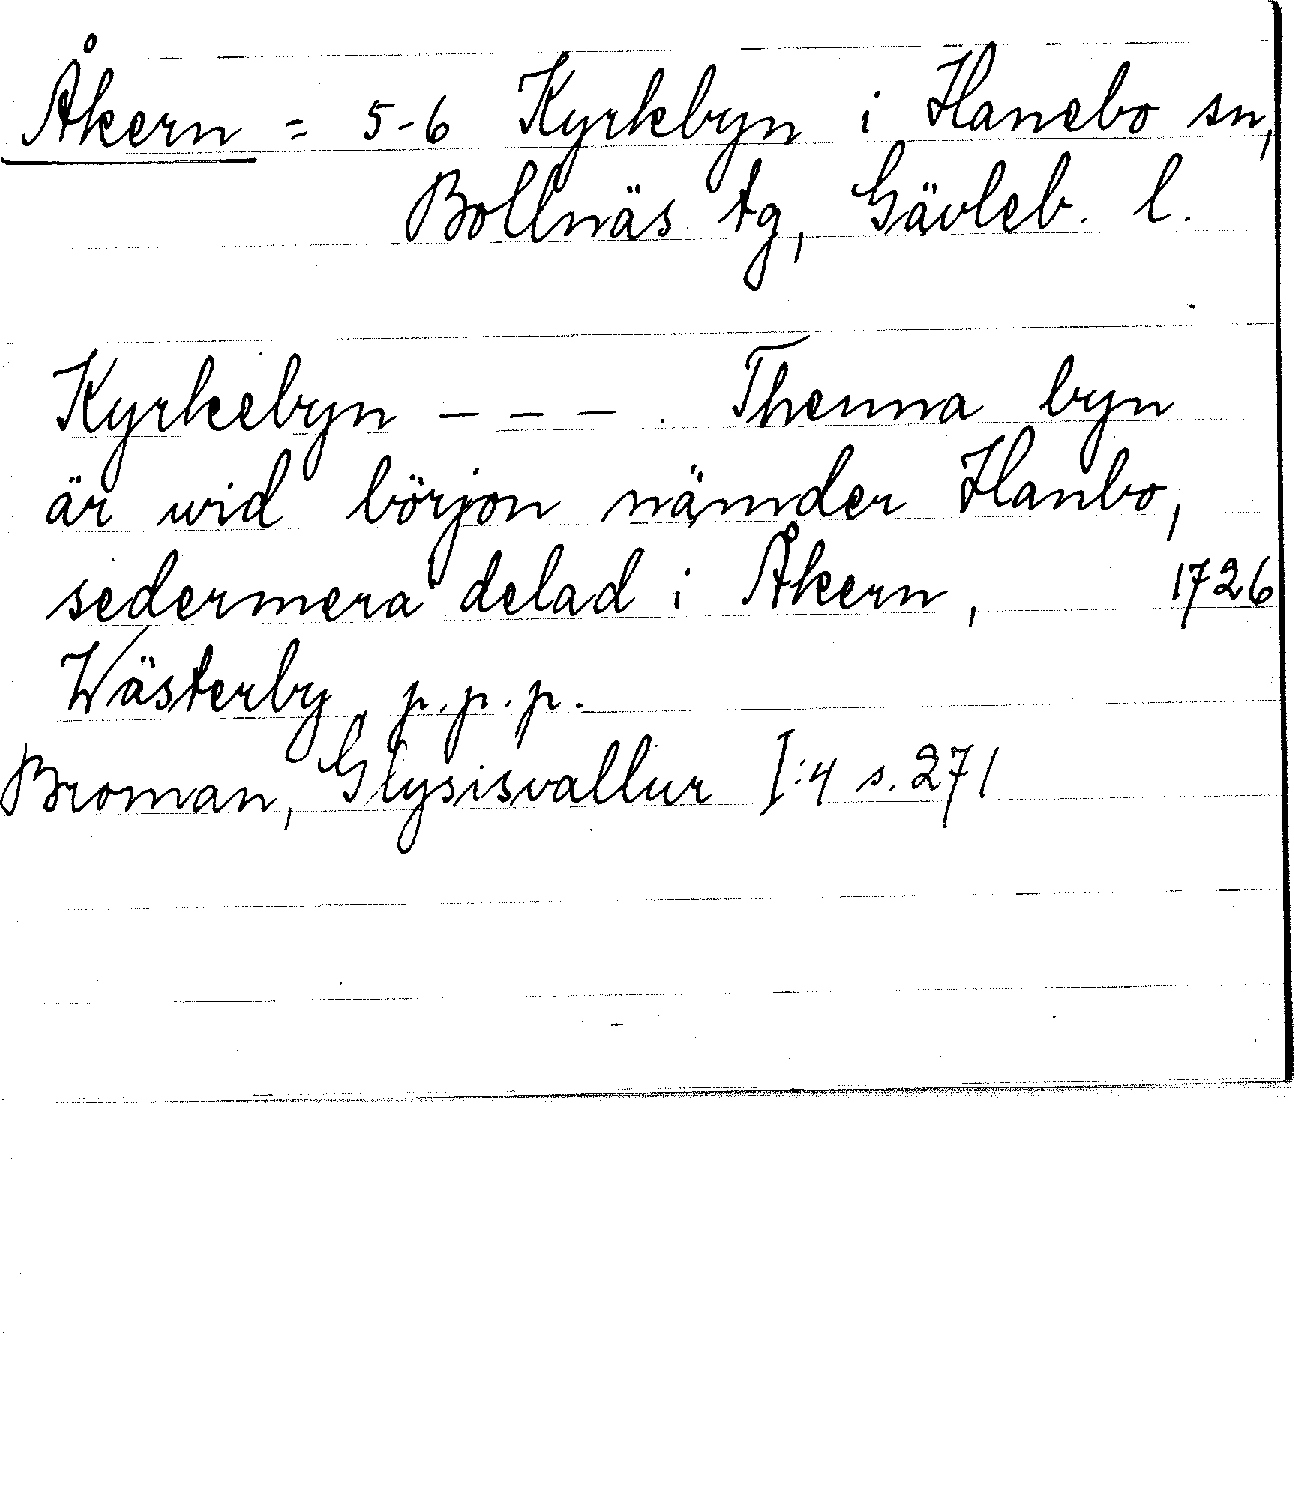 Åkern = 5-6 Kyrkbyn i Hanebo sn,
Bollnäs tg, Gävleb. l.
Kyrkebyn - - - . Thenna byn
är wid börjon nämder Hanbo,
sedermera delad i Åkern, 1726
Wästerby, p.p.p.
Broman, Glysisvallur I:4 s. 271